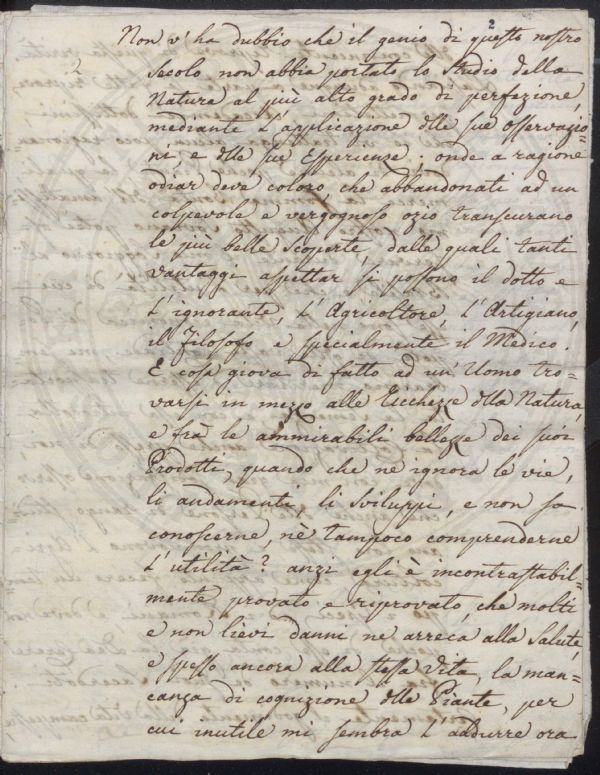 2
Non v'ha dubbio che il genio di questo nostro
2
secolo non abbia portato lo studio della
Natura al più alto grado di perfezione,
mediante l'applicazione dlle sue osservazio=
ni, e dlle sue esperienze; onde a ragione
odiar deve coloro che abbandonati ad un
colpevole e vergognoso ozio transcurano
le più belle scoperte, dalle quali tanti
vantaggi aspettar si possono il dotto e
l'ignorante, l'Agricoltore, l'Artigiano,
il Filosofo e specialmente il Medico.
E cosa giova di fatto ad un'Uomo tro=
varsi in mezzo alle Ricchezze dlla Natura,
e frà le ammirabili bellezze dei suoi
Prodotti, quando che ne ignora le vie,
li andamenti, li sviluppi, e non sa
conoscerne, nè tampoco comprenderne
l'utilità? anzi egli è incontrastabil=
mente provato e riprovato, che molti
e non lievi danni ne arreca alla salute,
e spesso ancora alla stessa vita, la man=
canza di cognizione dlle Piante, per
cui inutile mi sembra l'addurre ora